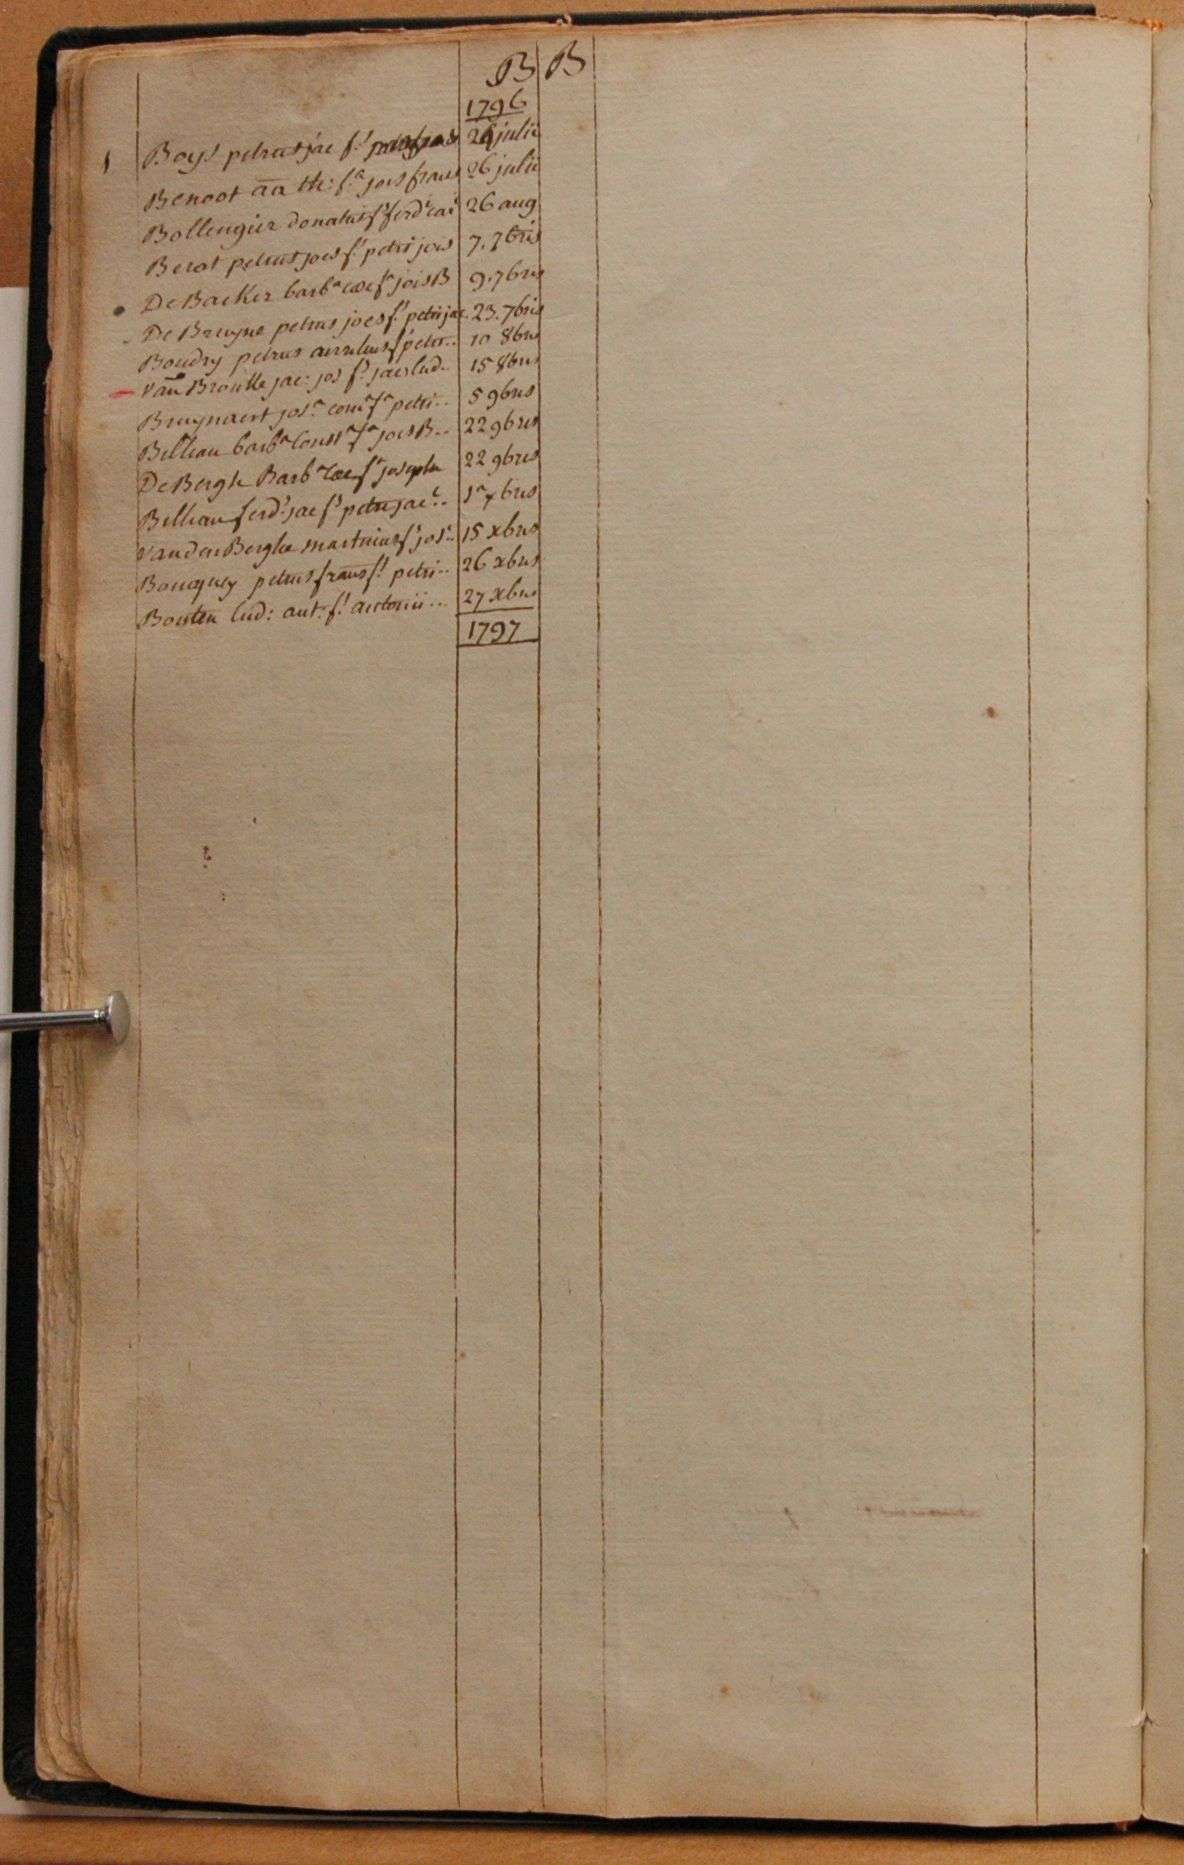 B B
1796
Boys petrus jac f.s 24 julii
Benoot āā th: f.a jois frans 26 julii
Bollengier donatus f.s ferd.i car.i 26 aug
Berat petrus joes f.s petri jois 7. 7bris
De Backer barb.a cæc f.a jois B 9. 7bris
De Bruyne petrus joes f.s petri jac. 23. 7bris
Boudry petrus aurelius f.s petri.. 10 8bris
van Brouke jac: jos f.s jac lud.. 15 8bris
Bruynaert jos.a f.a petri.. 5 9bris
Billiau barb.a Const.a f.a jois B.. 22 9bris
De Bergh Barb.a cæc f.a joseph 22 9bris
Billiau ferd.s jac f.s petri jac.i.. 1.a xbris
vanden Berghe martinus f.s jos.i.. 15 xbris
Boucquey petrus frans f.s petri.. 26 xbris
Bouten lud: ant. f.s antonii... 27 xbris
1797